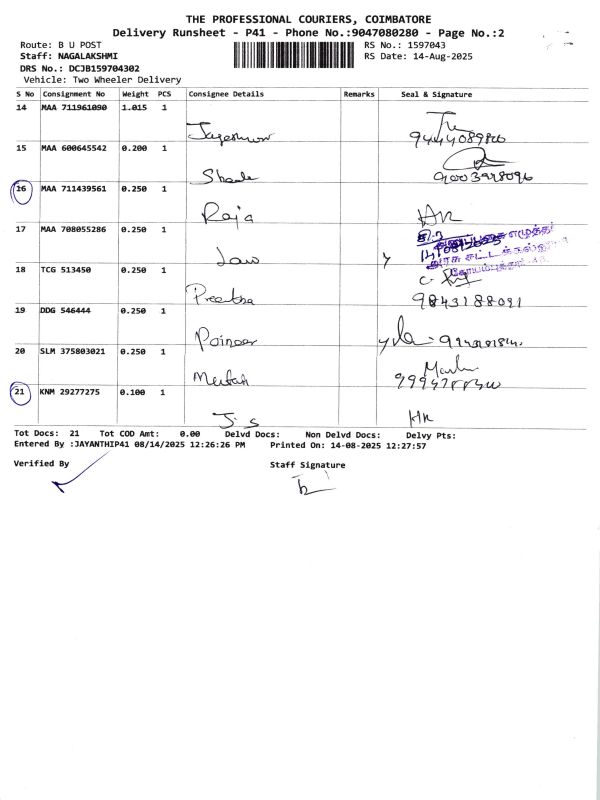 THE PROFESSIONAL COURIERS, COIMBATORE
Delivery Runsheet - P41 - Phone No.:9047080280 - Page No.:2
Route: B U POST
RS No.: 1597043
Staff: NAGALAKSHMI
RS Date: 14-Aug-2025
DRS No.: DCJB159704302
Vehicle: Two Wheeler Delivery
S No Consignment No Weight PCS Consignee Details Remarks Seal & Signature
14 MAA 711961090 1.015 1
Jayeshwar
15 MAA 600645542 0.200 1
9003948096
16 MAA 711439561 0.250 1
Raja
17 MAA 708055286 0.250 1
Law
எழுத்தர்
அரசு சட்டக்
18 TCG 513450 0.250 1
Preetha 9843188091
19 DDG 546444 0.250 1
Poineer
20 SLM 375803021 0.250 1
21 KNM 29277275 0.100 1
J. S
Tot Docs: 21 Tot COD Amt: 0.00 Delvd Docs: Non Delvd Docs: Delvy Pts:
Entered By :JAYANTHIP41 08/14/2025 12:26:26 PM Printed On: 14-08-2025 12:27:57
Verified By Staff Signature